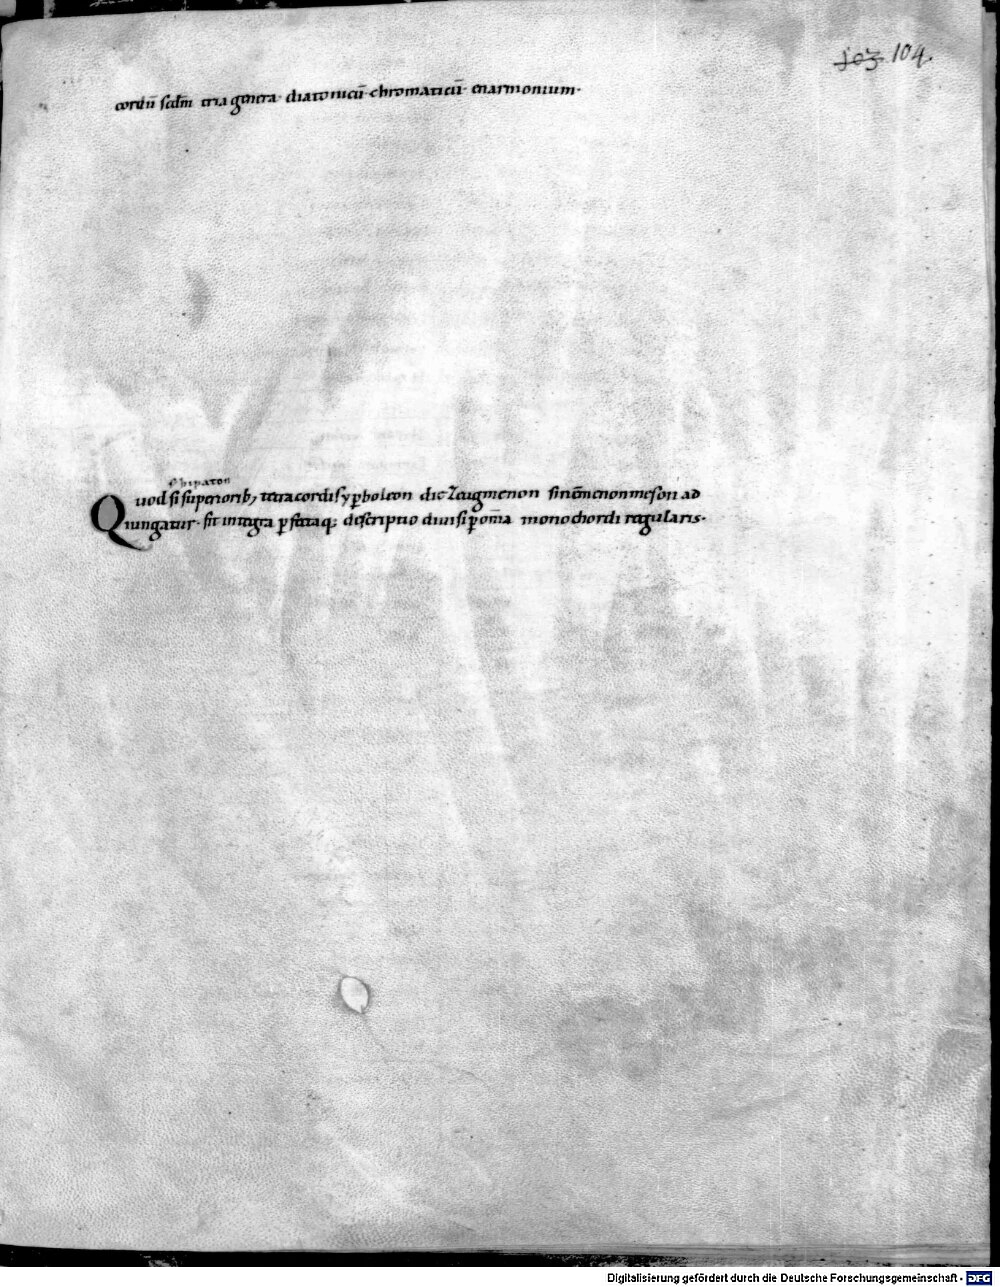 103 104.
cordū scdm̄ tria genera· diatonicū· chromaticū· enarmonium·
& hipaton
Quod si superiorib; tetracordis ypboleon diezeugmenon sinēmenon meson ad
iungatur· fit integra pfectaq; descriptio diuisi p om̄a monochordi regularis·
Digitalisierung gefördert durch die Deutsche Forschungsgemeinschaft - DFG